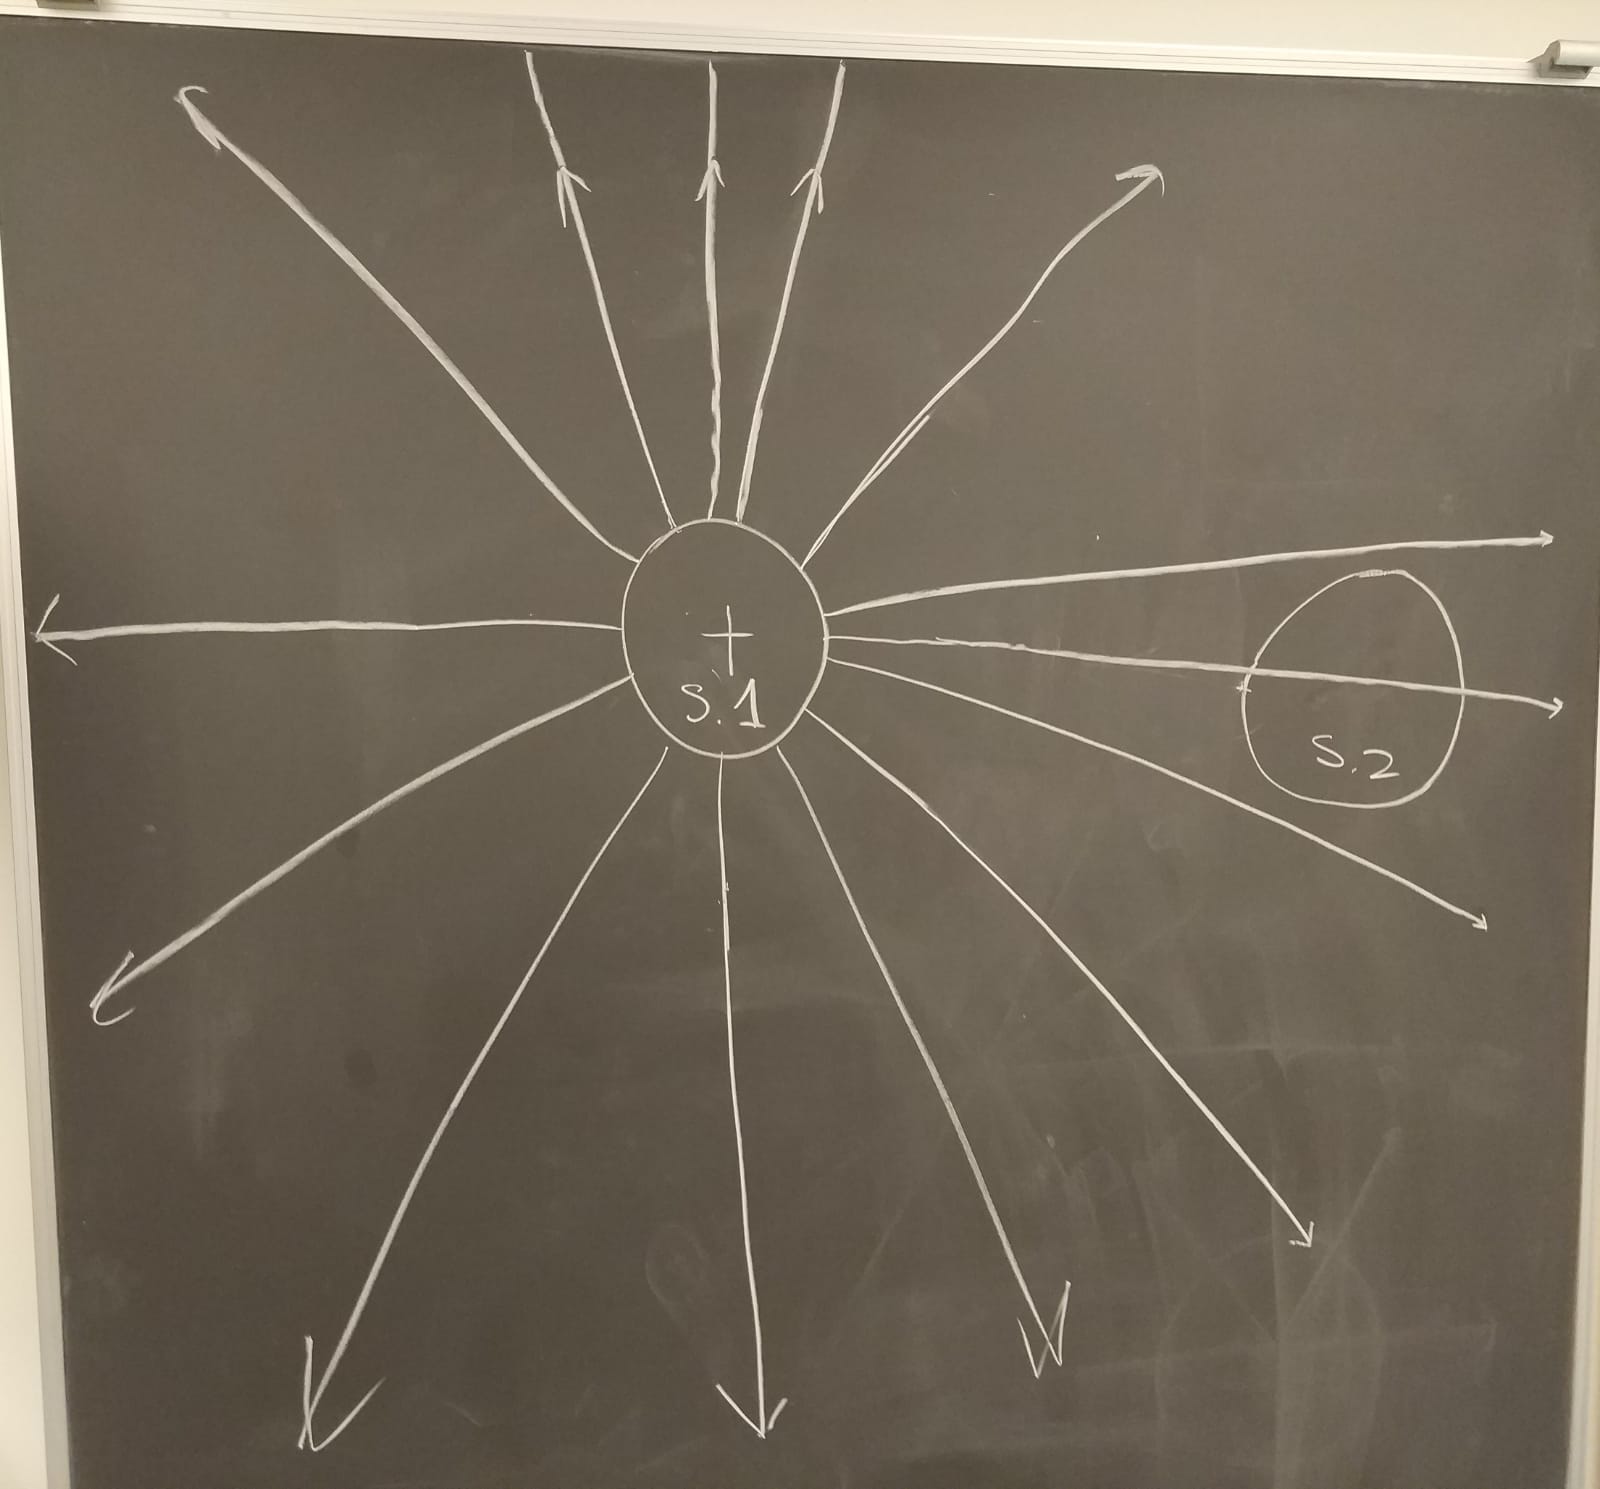 +
S.1
S.2